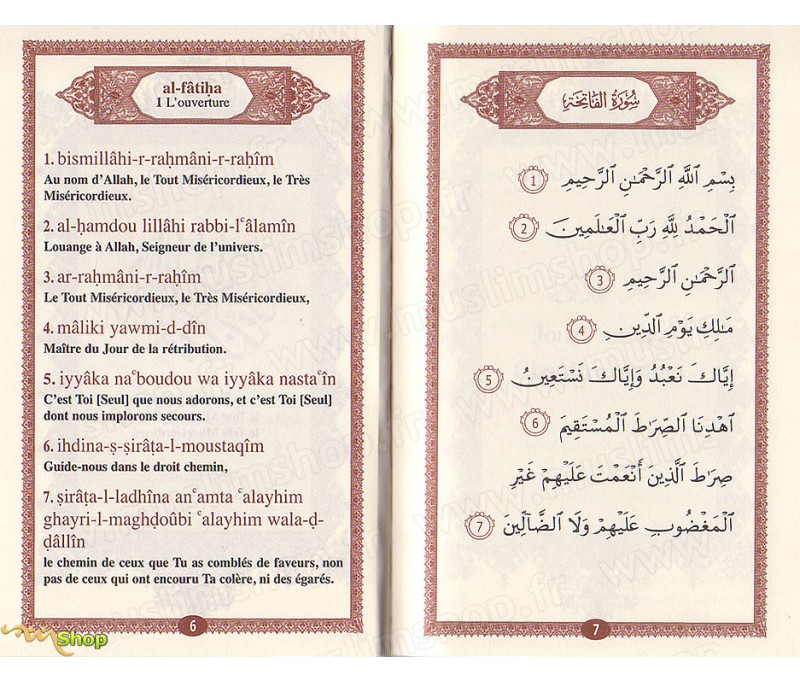 al-fâtiḥa
1 L'ouverture
1. bismillâhi-r-raḥmâni-r-raḥîm
Au nom d'Allah, le Tout Miséricordieux, le Très
Miséricordieux.
2. al-ḥamdou lillâhi rabbi-lʿâlamîn
Louange à Allah, Seigneur de l'univers.
3. ar-raḥmâni-r-raḥîm
Le Tout Miséricordieux, le Très Miséricordieux,
4. mâliki yawmi-d-dîn
Maître du Jour de la rétribution.
5. iyyâka naʿboudou wa iyyâka nastaʿîn
C'est Toi [Seul] que nous adorons, et c'est Toi [Seul]
dont nous implorons secours.
6. ihdina-ṣ-ṣirâṭa-l-moustaqîm
Guide-nous dans le droit chemin,
7. ṣirâṭa-l-ladhîna anʿamta ʿalayhim
ghayri-l-maghḍoûbi ʿalayhim wala-ḍ-
ḍâllîn
le chemin de ceux que Tu as comblés de faveurs, non
pas de ceux qui ont encouru Ta colère, ni des égarés.
6
Shop
سُورَةُ الفَاتِحَةِ
بِسْمِ ٱللَّهِ ٱلرَّحْمَٰنِ ٱلرَّحِيمِ 1
ٱلْحَمْدُ لِلَّهِ رَبِّ ٱلْعَٰلَمِينَ 2
ٱلرَّحْمَٰنِ ٱلرَّحِيمِ 3
مَٰلِكِ يَوْمِ ٱلدِّينِ 4
إِيَّاكَ نَعْبُدُ وَإِيَّاكَ نَسْتَعِينُ 5
ٱهْدِنَا ٱلصِّرَٰطَ ٱلْمُسْتَقِيمَ 6
صِرَٰطَ ٱلَّذِينَ أَنْعَمْتَ عَلَيْهِمْ غَيْرِ
ٱلْمَغْضُوبِ عَلَيْهِمْ وَلَا ٱلضَّآلِّينَ 7
7
www.muslimshop.fr